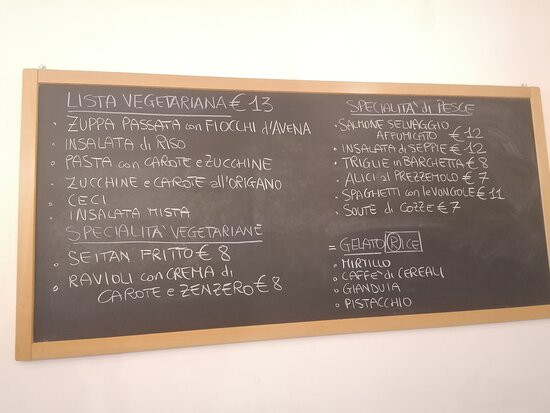 LISTA VEGETARIANA € 13
• ZUPPA PASSATA con FIOCCHI d'AVENA
• INSALATA di RISO
• PASTA con CAROTE e ZUCCHINE
• ZUCCHINE e CAROTE all'ORIGANO
• CECI
• INSALATA MISTA
SPECIALITA' VEGETARIANE
• SEITAN FRITTO € 8
• RAVIOLI con CREMA di
CAROTE e ZENZERO € 8
SPECIALITA' di PESCE
• SALMONE SELVAGGIO
AFFUMICATO € 12
• INSALATA di SEPPIE € 12
• TRIGLIE in BARCHETTA € 8
• ALICI al PREZZEMOLO € 7
• SPAGHETTI con le VONGOLE € 11
• SOUTE di COZZE € 7
= GELATO RICE
• MIRTILLO
• CAFFE' di CEREALI
• GIANDUIA
• PISTACCHIO